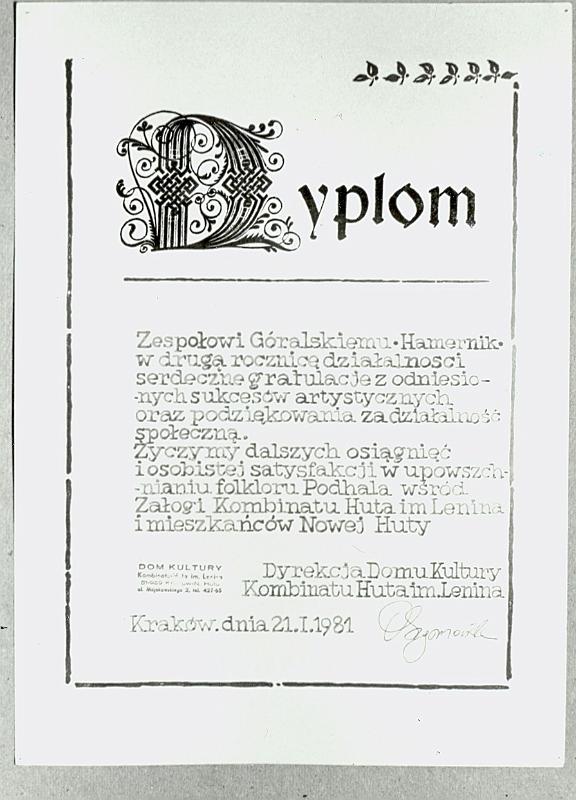 Dyplom
Zespołowi Góralskiemu • Hamernik •
w drugą rocznicę działalnosci
serdeczne gratulacje z odniesio-
-nych sukcesów artystycznych
oraz podziękowania za działalność
społeczną.
Życzymy dalszych osiągnięć
i osobistej satysfakcji w upowszch-
-nianiu folkloru Podhala wśród
Załogi Kombinatu Huta im Lenina
i mieszkańców Nowej Huty
DOM KULTURY
Kombinatu im. Lenina
ul. Majakowskiego 2, tel. 427-65
Dyrekcja Domu Kultury
Kombinatu Huta im. Lenina
Kraków. dnia 21.I.1981